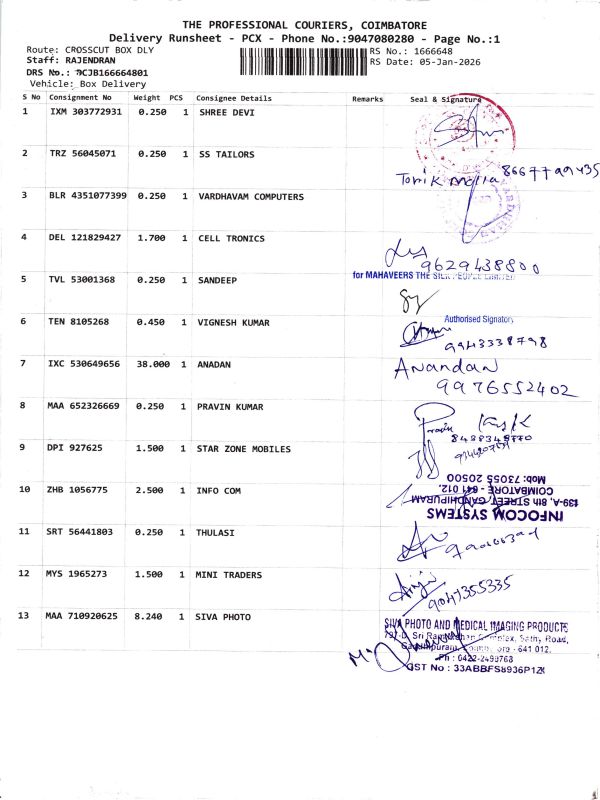 THE PROFESSIONAL COURIERS, COIMBATORE
Delivery Runsheet - PCX - Phone No.:9047080280 - Page No.:1
Route: CROSSCUT BOX DLY RS No.: 1666648
Staff: RAJENDRAN RS Date: 05-Jan-2026
DRS No.: DCJB166664801
Vehicle: Box Delivery
S No Consignment No Weight PCS Consignee Details Remarks Seal & Signature
1 IXM 303772931 0.250 1 SHREE DEVI
2 TRZ 56045071 0.250 1 SS TAILORS
8667799435
3 BLR 4351077399 0.250 1 VARDHAVAM COMPUTERS
4 DEL 121829427 1.700 1 CELL TRONICS
9629438800
for MAHAVEERS THE SILK PEOPLE LIMITED
5 TVL 53001368 0.250 1 SANDEEP
Authorised Signatory
6 TEN 8105268 0.450 1 VIGNESH KUMAR
9943338798
7 IXC 530649656 38.000 1 ANADAN
Anandan
9976552402
8 MAA 652326669 0.250 1 PRAVIN KUMAR
8438348770
9 DPI 927625 1.500 1 STAR ZONE MOBILES
10 ZHB 1056775 2.500 1 INFO COM
INFOCOM SYSTEMS
139-A, 8th STREET, GANDHIPURAM
COIMBATORE - 641 012.
Mob: 73055 20500
11 SRT 56441803 0.250 1 THULASI
12 MYS 1965273 1.500 1 MINI TRADERS
9047355335
13 MAA 710920625 8.240 1 SIVA PHOTO
SIVA PHOTO AND MEDICAL IMAGING PRODUCTS
Complex, Sathy Road,
641 012.
Ph : 0422-2499768
GST No : 33ABBFS8936P1ZK